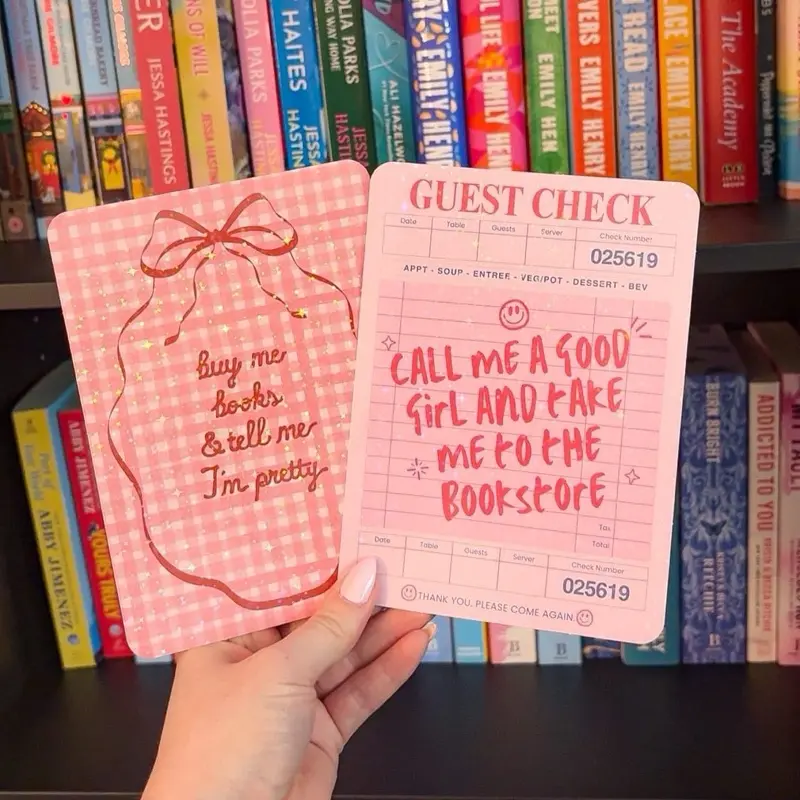 JESSA HASTINGS
JESSA
JESSA
HAITES
ALI HAZELWOOD
EMILY HENRY
EMILY HENRY
EMILY HEN
EMILY HENRY
READ EMILY HENRY
PLACE EMILY HENRY
The Academy
Buy me
books
& tell me
I'm pretty
GUEST CHECK
Date Table Guests Server Check Number
025619
APPT - SOUP - ENTREE - VEG/POT - DESSERT - BEV
CALL ME A GOOD
GIRL AND TAKE
ME TO THE
BOOKSTORE
Tax
Total
Date Table Guests Server Check Number
025619
THANK YOU, PLEASE COME AGAIN.
ABBY JIMENEZ
ABBY JIMENEZ
BURN BRIGHT
RITCHIE
ADDICTED TO YOU